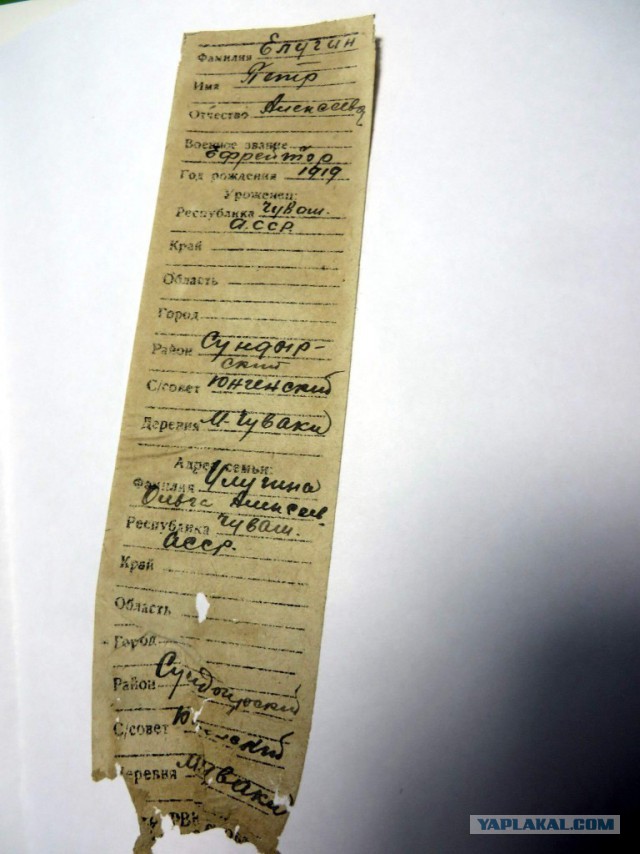 Фамилия Елугин
Имя Петр
Отчество Алексеев
Военное звание
Ефрейтор
Год рождения 1919
Уроженец:
Республика Чуваш.
АССР.
Край
Область
Город
Район Сундыр-
ский
С/совет Юнгенский
Деревня М. Чуваки
Адрес семьи:
Фамилия Улугина
Ольга Алексеев
Республика Чуваш.
АССР.
Край
Область
Город
Район Сундырский
С/совет
Деревня
YAPLAKAL.COM